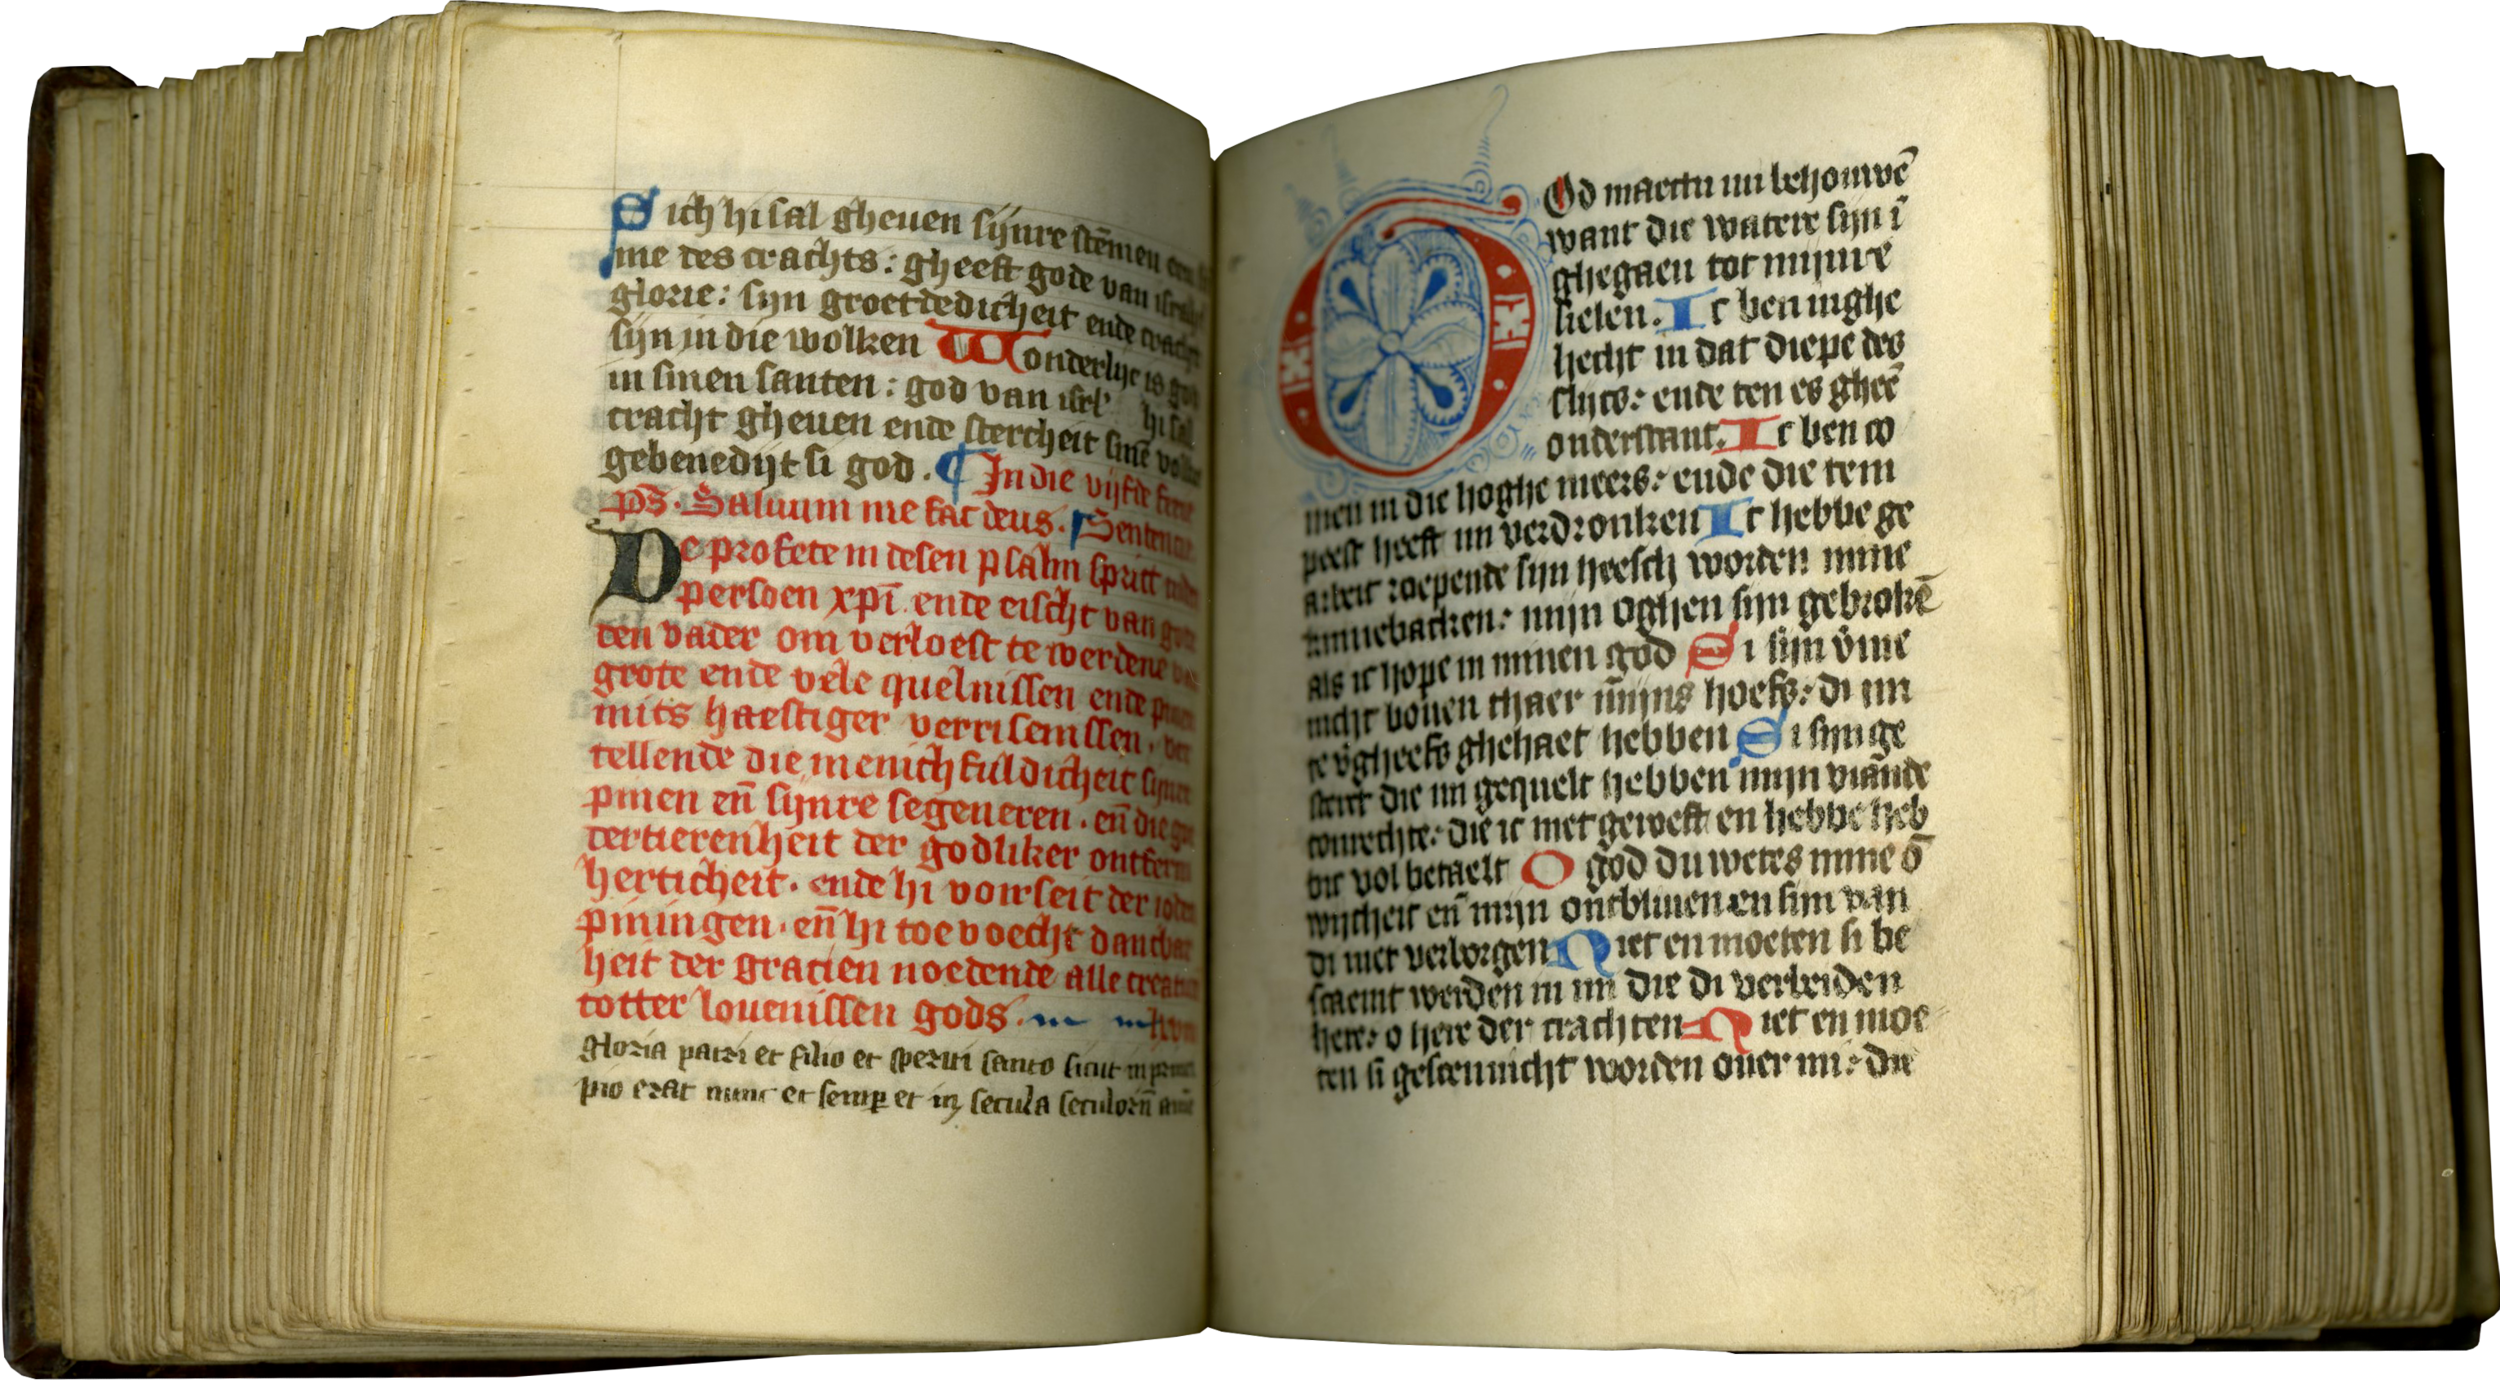 Sich hi sal gheuen sijnre stēmen een
me des crachts: gheeft gode van
glorie: sijn groetdedicheit ende cracht
sijn in die wolken Wonderlijc is god
in sinen santen: god van isrl' hi sal
cracht gheuen ende stercheit sinē volke
gebenedijt si god. In die vijfde ferie
ps̄. Saluum me fac deus. Sentencie
De profete in desen psalm sprict inden
persoen xpī ende eischt van gode
den vader om verloest te werdene van
grote ende vele quelnissen ende pinen
mits haestiger verrisenissen. ver
tellende die menichfuldicheit sijnre
pinen en̄ sijnre segeneren. en̄ die goe
dertierenheit der godliker ontferm
herticheit. ende hi voirseit der ioden
piningen. en̄ hi toe voecht dancbar
heit der gracien noedende alle creatu
totter louenissen gods.
gloria patri et filio et spiritui santo sicut in princi
pio erat nunc et semp et in secula seculorū amē
O God maectu mi behouwē
want die watere sijn ī
ghegaen tot mijnre
sielen. Ic ben inghe
hecht in dat diepe des
slijcs: ende ten es gheē
onderstant. Ic ben co
men in die hoghe meers: ende die tem
peest heeft mi verdronken Ic hebbe ge
arbeit roepende sijn heesch worden mine
kinnebacken: mijn oghen sijn gebrokē
als ic hope in minen god Si sijn v̄me
nicht bouen thaer mijns hoefs: di mi
te v̄gheefs ghehaet hebben Si sijn ge
sterct die mi gequelt hebben mijn viāde
tonrechte: die ic niet geroeft en hebbe heb
bic vol betaelt O god du wetes mine ō
wijsheit en̄ mijn ontbliuen en sijn van
di niet verborgen Niet en moeten si be
scaemt werden in mi die di verbeiden
here: o here der crachten Niet en moe
ten si gescennicht worden ouer mi: die